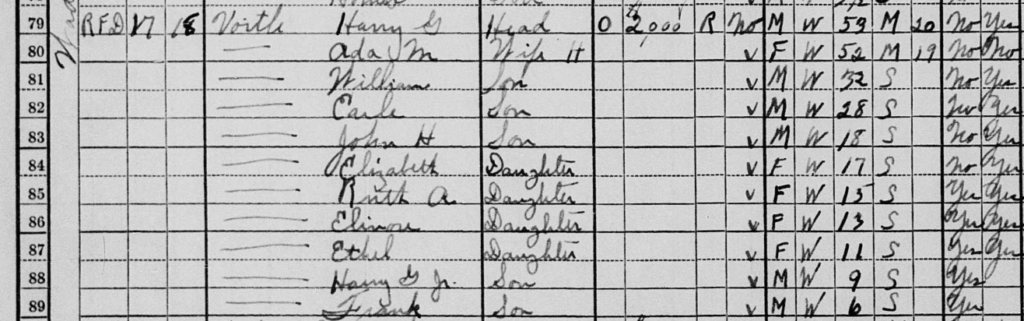 79 RFD 17 18 Vortle Harry G Head O 2,000 R No M W 59 M 20 No Yes
80 Ada M Wife H v F W 52 M 19 No No
81 William Son v M W 32 S No Yes
82 Earle Son v M W 28 S No Yes
83 John H Son v M W 18 S No Yes
84 Elizabeth Daughter v F W 17 S No Yes
85 Ruth A. Daughter v F W 15 S Yes Yes
86 Elinore Daughter v F W 13 S Yes Yes
87 Ethel Daughter v F W 11 S Yes Yes
88 Harry G Jr. Son v M W 9 S Yes
89 Frank Son v M W 6 S Yes